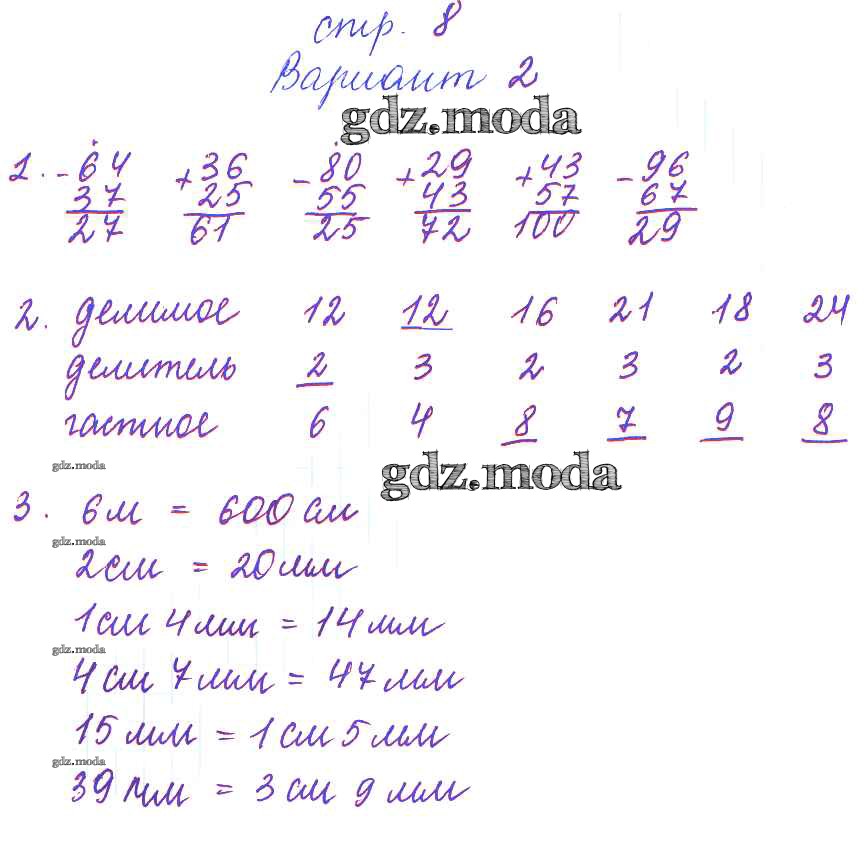 стр. 8
Вариант 2
gdz.moda
1. - 64 + 36 - 80 + 29 + 43 - 96
37 25 55 43 57 67
27 61 25 72 100 29
2. делимое 12 12 16 21 18 24
делитель 2 3 2 3 2 3
частное 6 4 8 7 9 8
gdz.moda gdz.moda
3. 6м = 600 см
gdz.moda
2см = 20мм
1см 4мм = 14мм
gdz.moda
4см 7мм = 47мм
15мм = 1см 5мм
gdz.moda
39мм = 3см 9мм